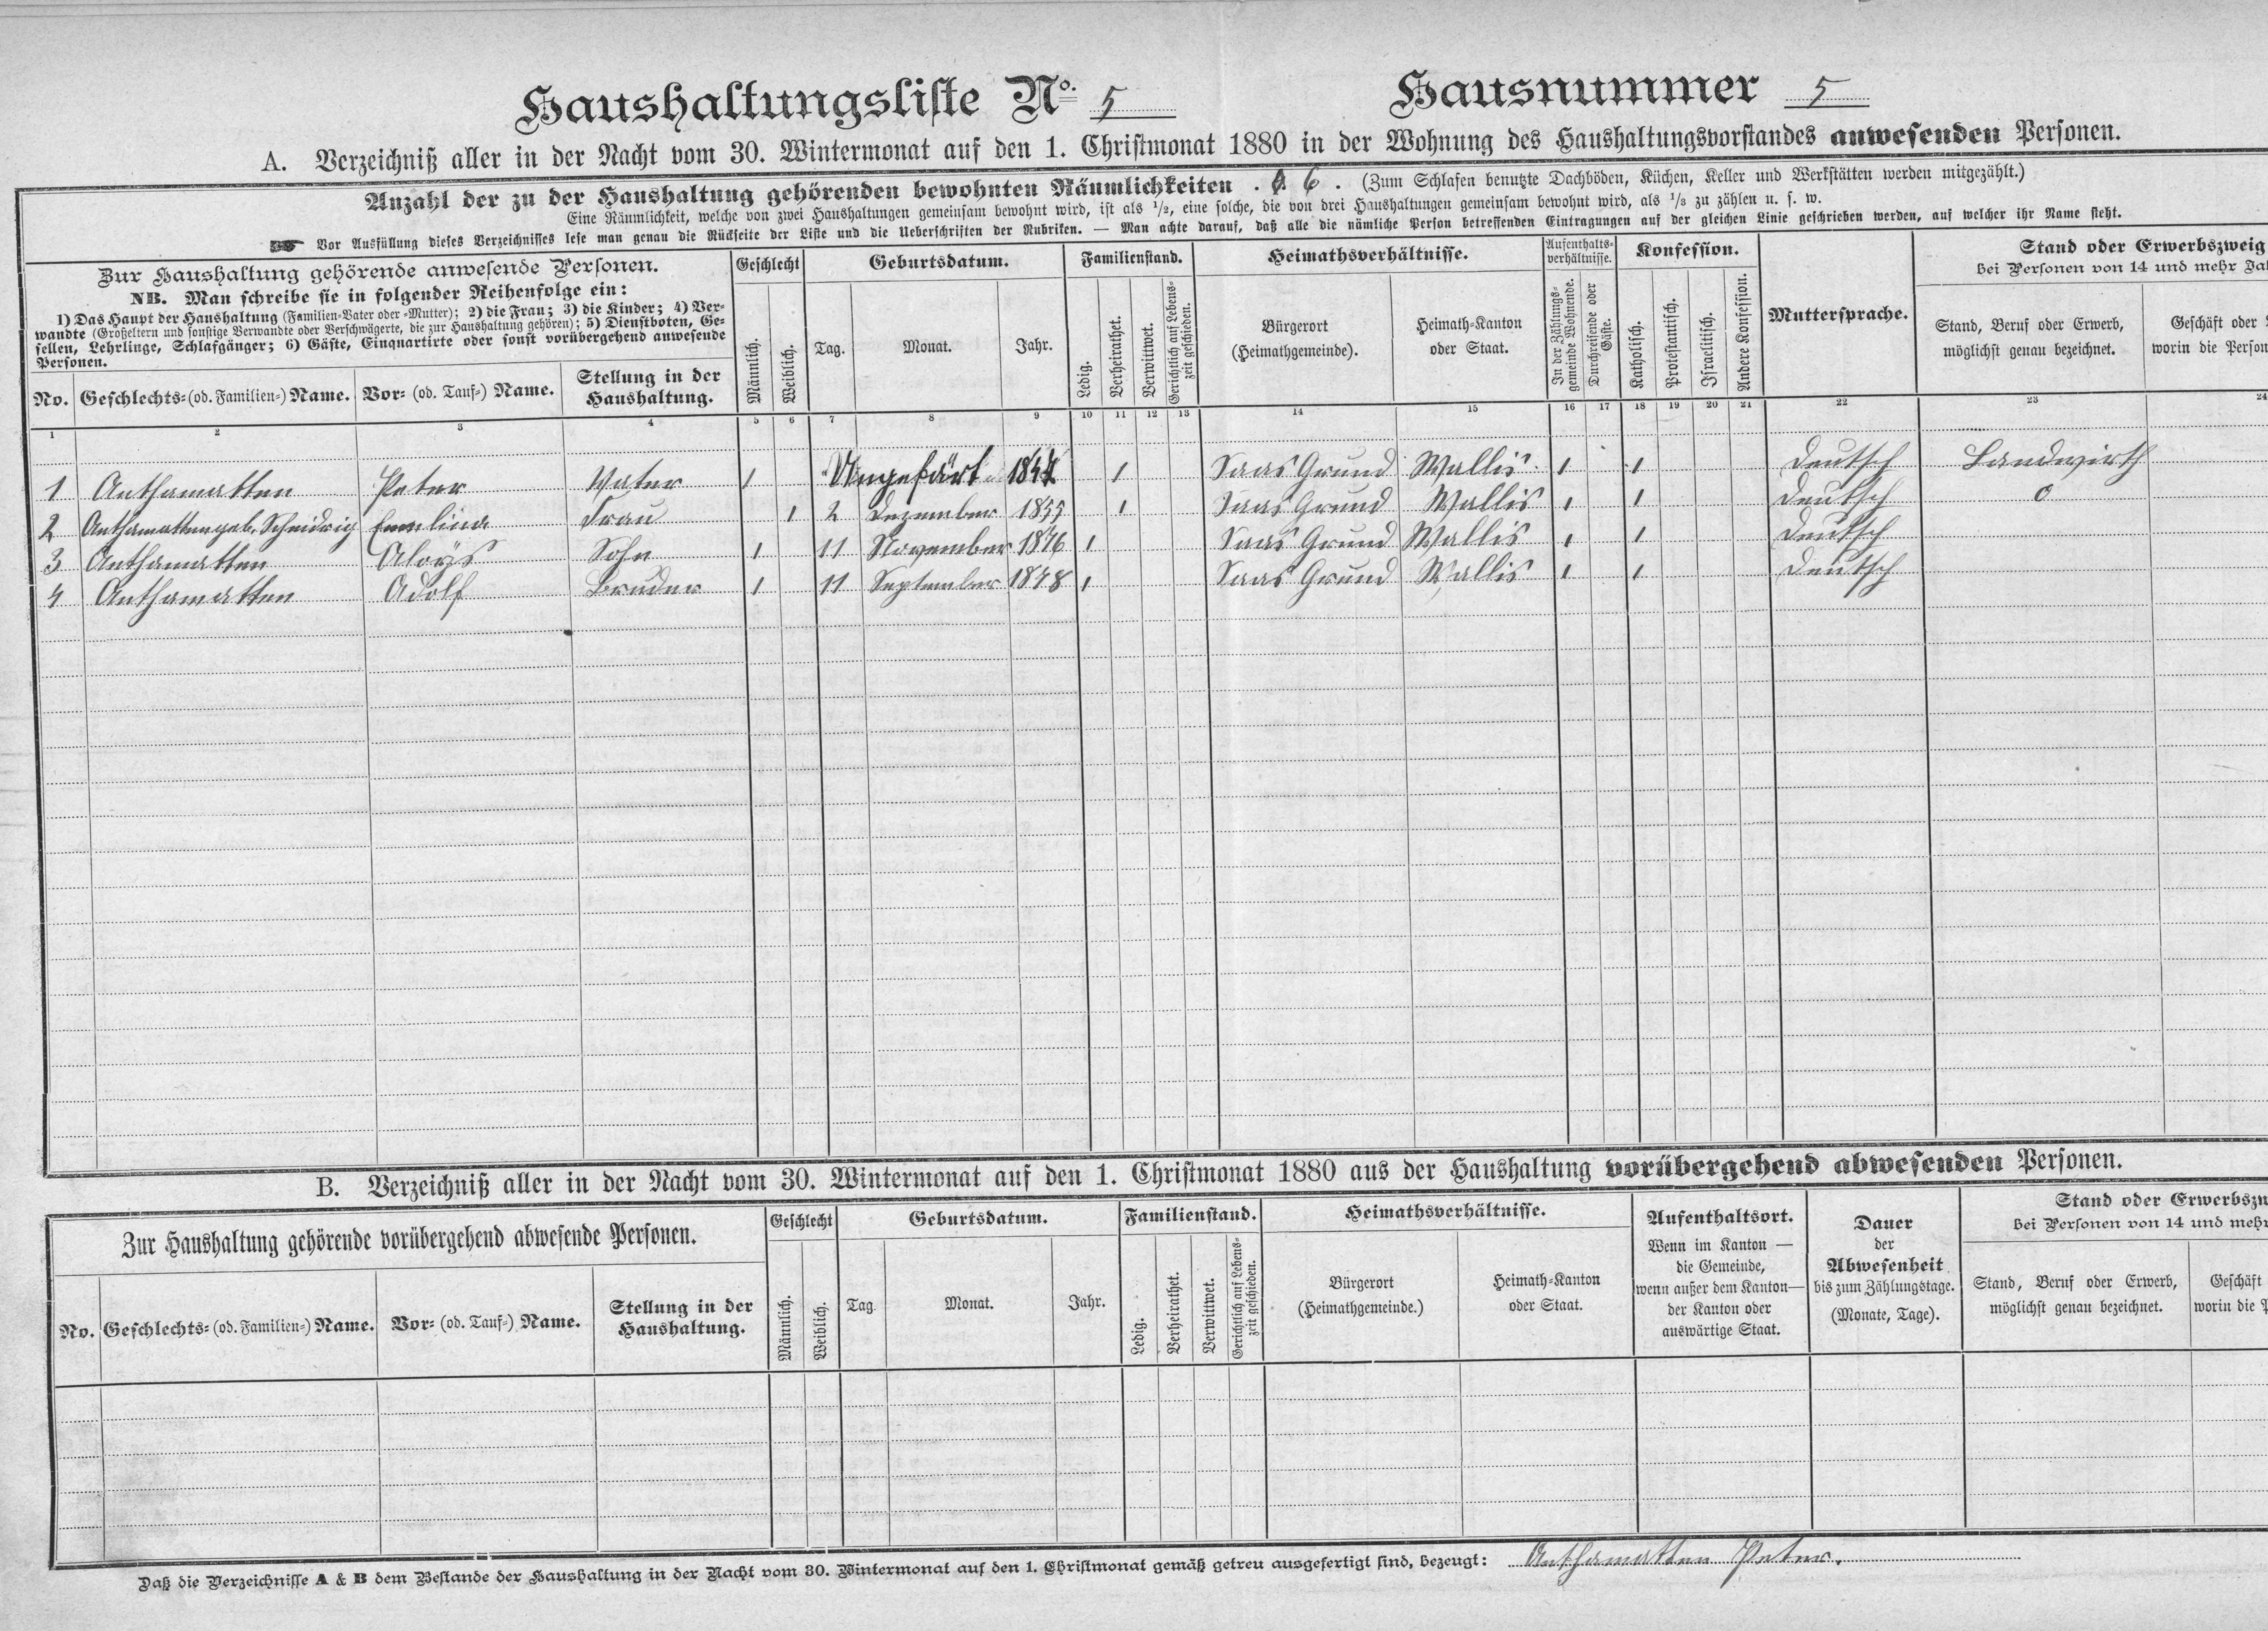 Haushaltungsliste No. 5 Hausnummer 5
A. Verzeichniß aller in der Nacht vom 30. Wintermonat auf den 1. Christmonat 1880 in der Wohnung des Haushaltungsvorstandes anwesenden Personen.
Anzahl der zu der Haushaltung gehörenden bewohnten Räumlichkeiten . 6 . (Zum Schlafen benutzte Dachböden, Küchen, Keller und Werkstätten werden mitgezählt.)
Eine Räumlichkeit, welche von zwei Haushaltungen gemeinsam bewohnt wird, ist als 1/2, eine solche, die von drei Haushaltungen gemeinsam bewohnt wird, als 1/3 zu zählen u. s. w.
Vor Ausfüllung dieses Verzeichnisses lese man genau die Rückseite der Liste und die Ueberschriften der Rubriken. — Man achte darauf, daß alle die nämliche Person betreffenden Eintragungen auf der gleichen Linie geschrieben werden, auf welcher ihr Name steht.
Zur Haushaltung gehörende anwesende Personen.
NB. Man schreibe sie in folgender Reihenfolge ein:
1) Das Haupt der Haushaltung (Familien-Vater oder -Mutter); 2) die Frau; 3) die Kinder; 4) Ver-
wandte (Großeltern und sonstige Verwandte oder Verschwägerte, die zur Haushaltung gehören); 5) Dienstboten, Ge-
sellen, Lehrlinge, Schlafgänger; 6) Gäste, Einquartirte oder sonst vorübergehend anwesende
Personen.
No. Geschlechts- (od. Familien-) Name. Vor- (od. Tauf-) Name. Stellung in der
Haushaltung.
Geschlecht
Männlich. Weiblich.
Geburtsdatum.
Tag. Monat. Jahr.
Familienstand.
Ledig. Verheirathet. Verwittwet. Gerichtlich auf Lebens-
zeit geschieden.
Heimathsverhältnisse.
Bürgerort
(Heimathgemeinde).
Heimath-Kanton
oder Staat.
Aufenthalts-
verhältnisse.
In der Zählungs-
gemeinde Wohnende.
Durchreisende oder
Gäste.
Konfession.
Katholisch. Protestantisch. Israelitisch. Andere Konfession.
Muttersprache.
Stand oder Erwerbszweig
bei Personen von 14 und mehr
Stand, Beruf oder Erwerb,
möglichst genau bezeichnet.
Geschäft oder
worin die Person
1 2 3 4 5 6 7 8 9 10 11 12 13 14 15 16 17 18 19 20 21 22 23 24
1 Anthamatten Peter Vater 1 Ungefärt 1 Saas Grund Wallis 1 1 Deutsch Landwirth
2 Anthamatten geb. Scheidrig Frau 1 2 Dezember 1855 1 Saas Grund Wallis 1 1 Deutsch 0
3 Anthamatten Aloÿs Sohn 1 11 November 1876 1 Saas Grund Wallis 1 1 Deutsch
4 Anthamatten Adolf Bruder 1 11 September 1848 1 Saas Grund Wallis 1 1 Deutsch
B. Verzeichniß aller in der Nacht vom 30. Wintermonat auf den 1. Christmonat 1880 aus der Haushaltung vorübergehend abwesenden Personen.
Zur Haushaltung gehörende vorübergehend abwesende Personen.
No. Geschlechts- (od. Familien-) Name. Vor- (od. Tauf-) Name. Stellung in der
Haushaltung.
Geschlecht
Männlich. Weiblich.
Geburtsdatum.
Tag Monat. Jahr.
Familienstand.
Ledig. Verheirathet. Verwittwet. Gerichtlich auf Lebens-
zeit geschieden.
Heimathsverhältnisse.
Bürgerort
(Heimathgemeinde.)
Heimath-Kanton
oder Staat.
Aufenthaltsort.
Wenn im Kanton —
die Gemeinde,
wenn außer dem Kanton—
der Kanton oder
auswärtige Staat.
Dauer
der
Abwesenheit
bis zum Zählungstage.
(Monate, Tage).
Stand oder
bei Personen von 14 und mehr
Stand, Beruf oder Erwerb,
möglichst genau bezeichnet.
Geschäft
worin die
Daß die Verzeichnisse A & B dem Bestande der Haushaltung in der Nacht vom 30. Wintermonat auf den 1. Christmonat gemäß getreu ausgefertigt sind, bezeugt: Anthamatten Peter.